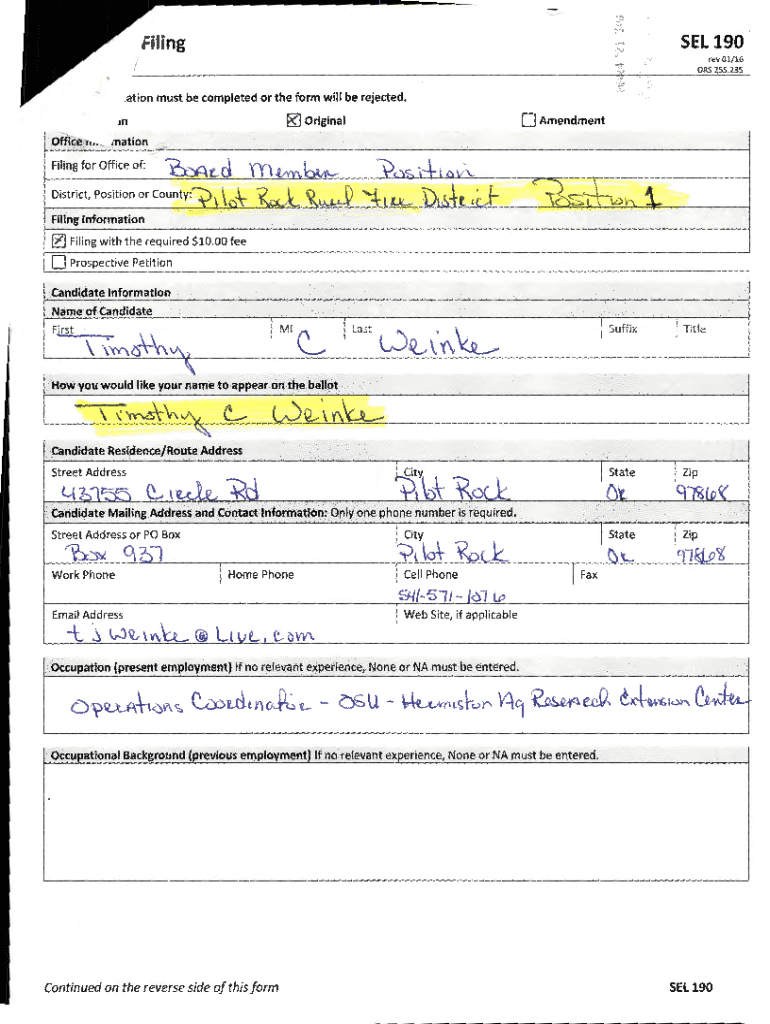 Filing
SEL 190
rev 01/16
ORS 255.235
ation must be completed or the form will be rejected.
☒ Original ☐ Amendment
Office mation
Filing for Office of: Board Member Position
District, Position or County: Pilot Rock Rural Fire District Position 1
Filing Information
☒ Filing with the required $10.00 fee
☐ Prospective Petition
Candidate Information
Name of Candidate
First MI Last Suffix Title
Timothy C Weinke
How you would like your name to appear on the ballot
Timothy C Weinke
Candidate Residence/Route Address
Street Address City State Zip
43755 Circle Rd Pilot Rock OR 97868
Candidate Mailing Address and Contact Information: Only one phone number is required.
Street Address or PO Box City State Zip
Box 937 Pilot Rock OR 97868
Work Phone Home Phone Cell Phone Fax
541-571-1076
Email Address Web Site, if applicable
tjweinke@Live.com
Occupation (present employment) If no relevant experience, None or NA must be entered.
Operations Coordinator - OSU - Hermiston Ag Research Extension Center
Occupational Background (previous employment) If no relevant experience, None or NA must be entered.
Continued on the reverse side of this form SEL 190